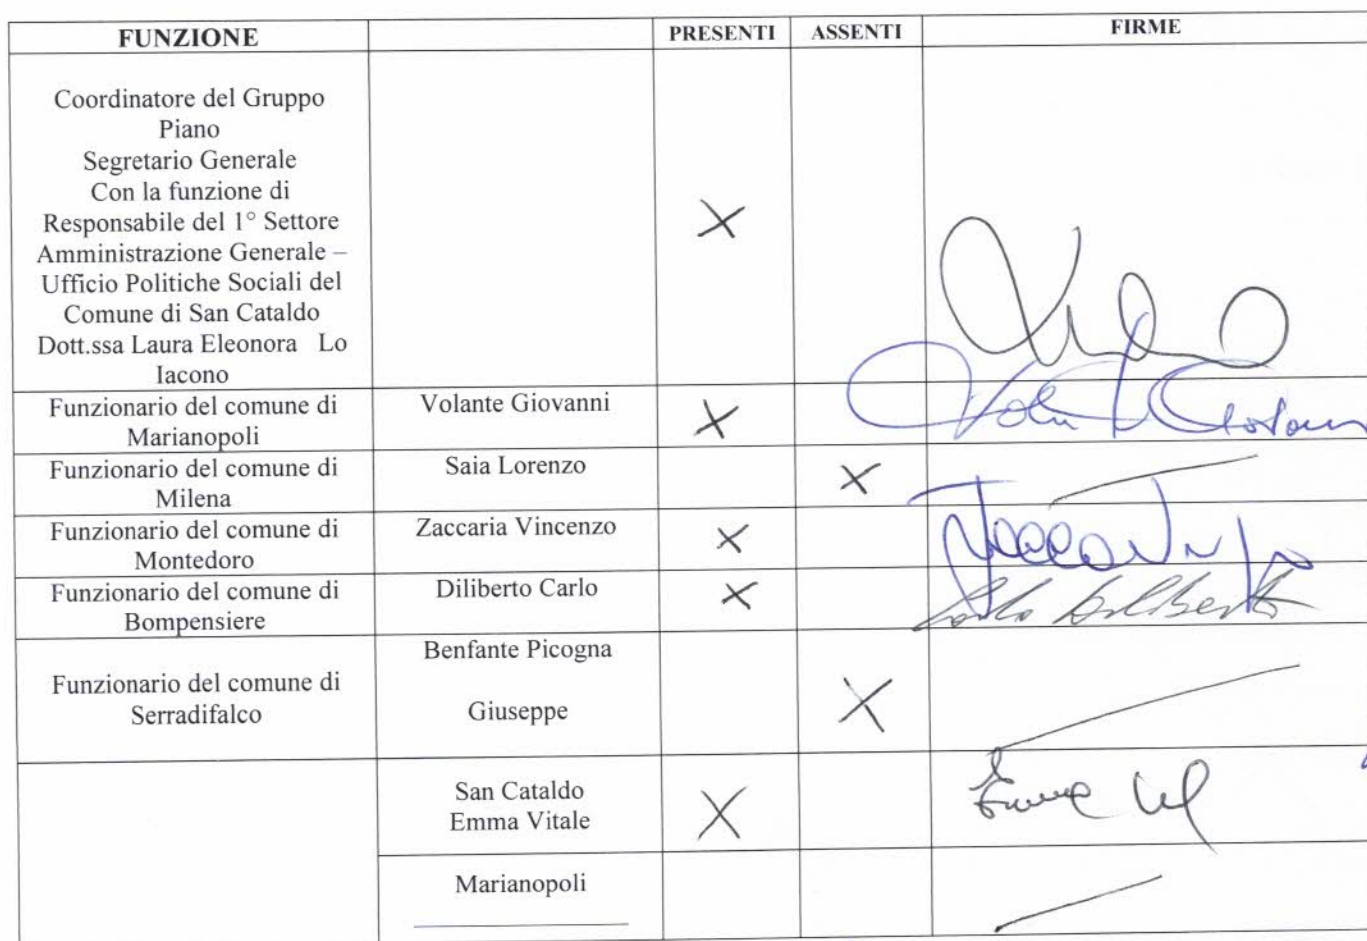 FUNZIONE PRESENTI ASSENTI FIRME
Coordinatore del Gruppo
Piano
Segretario Generale
Con la funzione di
Responsabile del 1° Settore
Amministrazione Generale –
Ufficio Politiche Sociali del
Comune di San Cataldo
Dott.ssa Laura Eleonora Lo
Iacono
X
Funzionario del comune di
Marianopoli
Volante Giovanni
X
Funzionario del comune di
Milena
Saia Lorenzo
X
Funzionario del comune di
Montedoro
Zaccaria Vincenzo
X
Funzionario del comune di
Bompensiere
Diliberto Carlo
X
Carlo Diliberto
Funzionario del comune di
Serradifalco
Benfante Picogna
Giuseppe
X
San Cataldo
Emma Vitale
X
Marianopoli